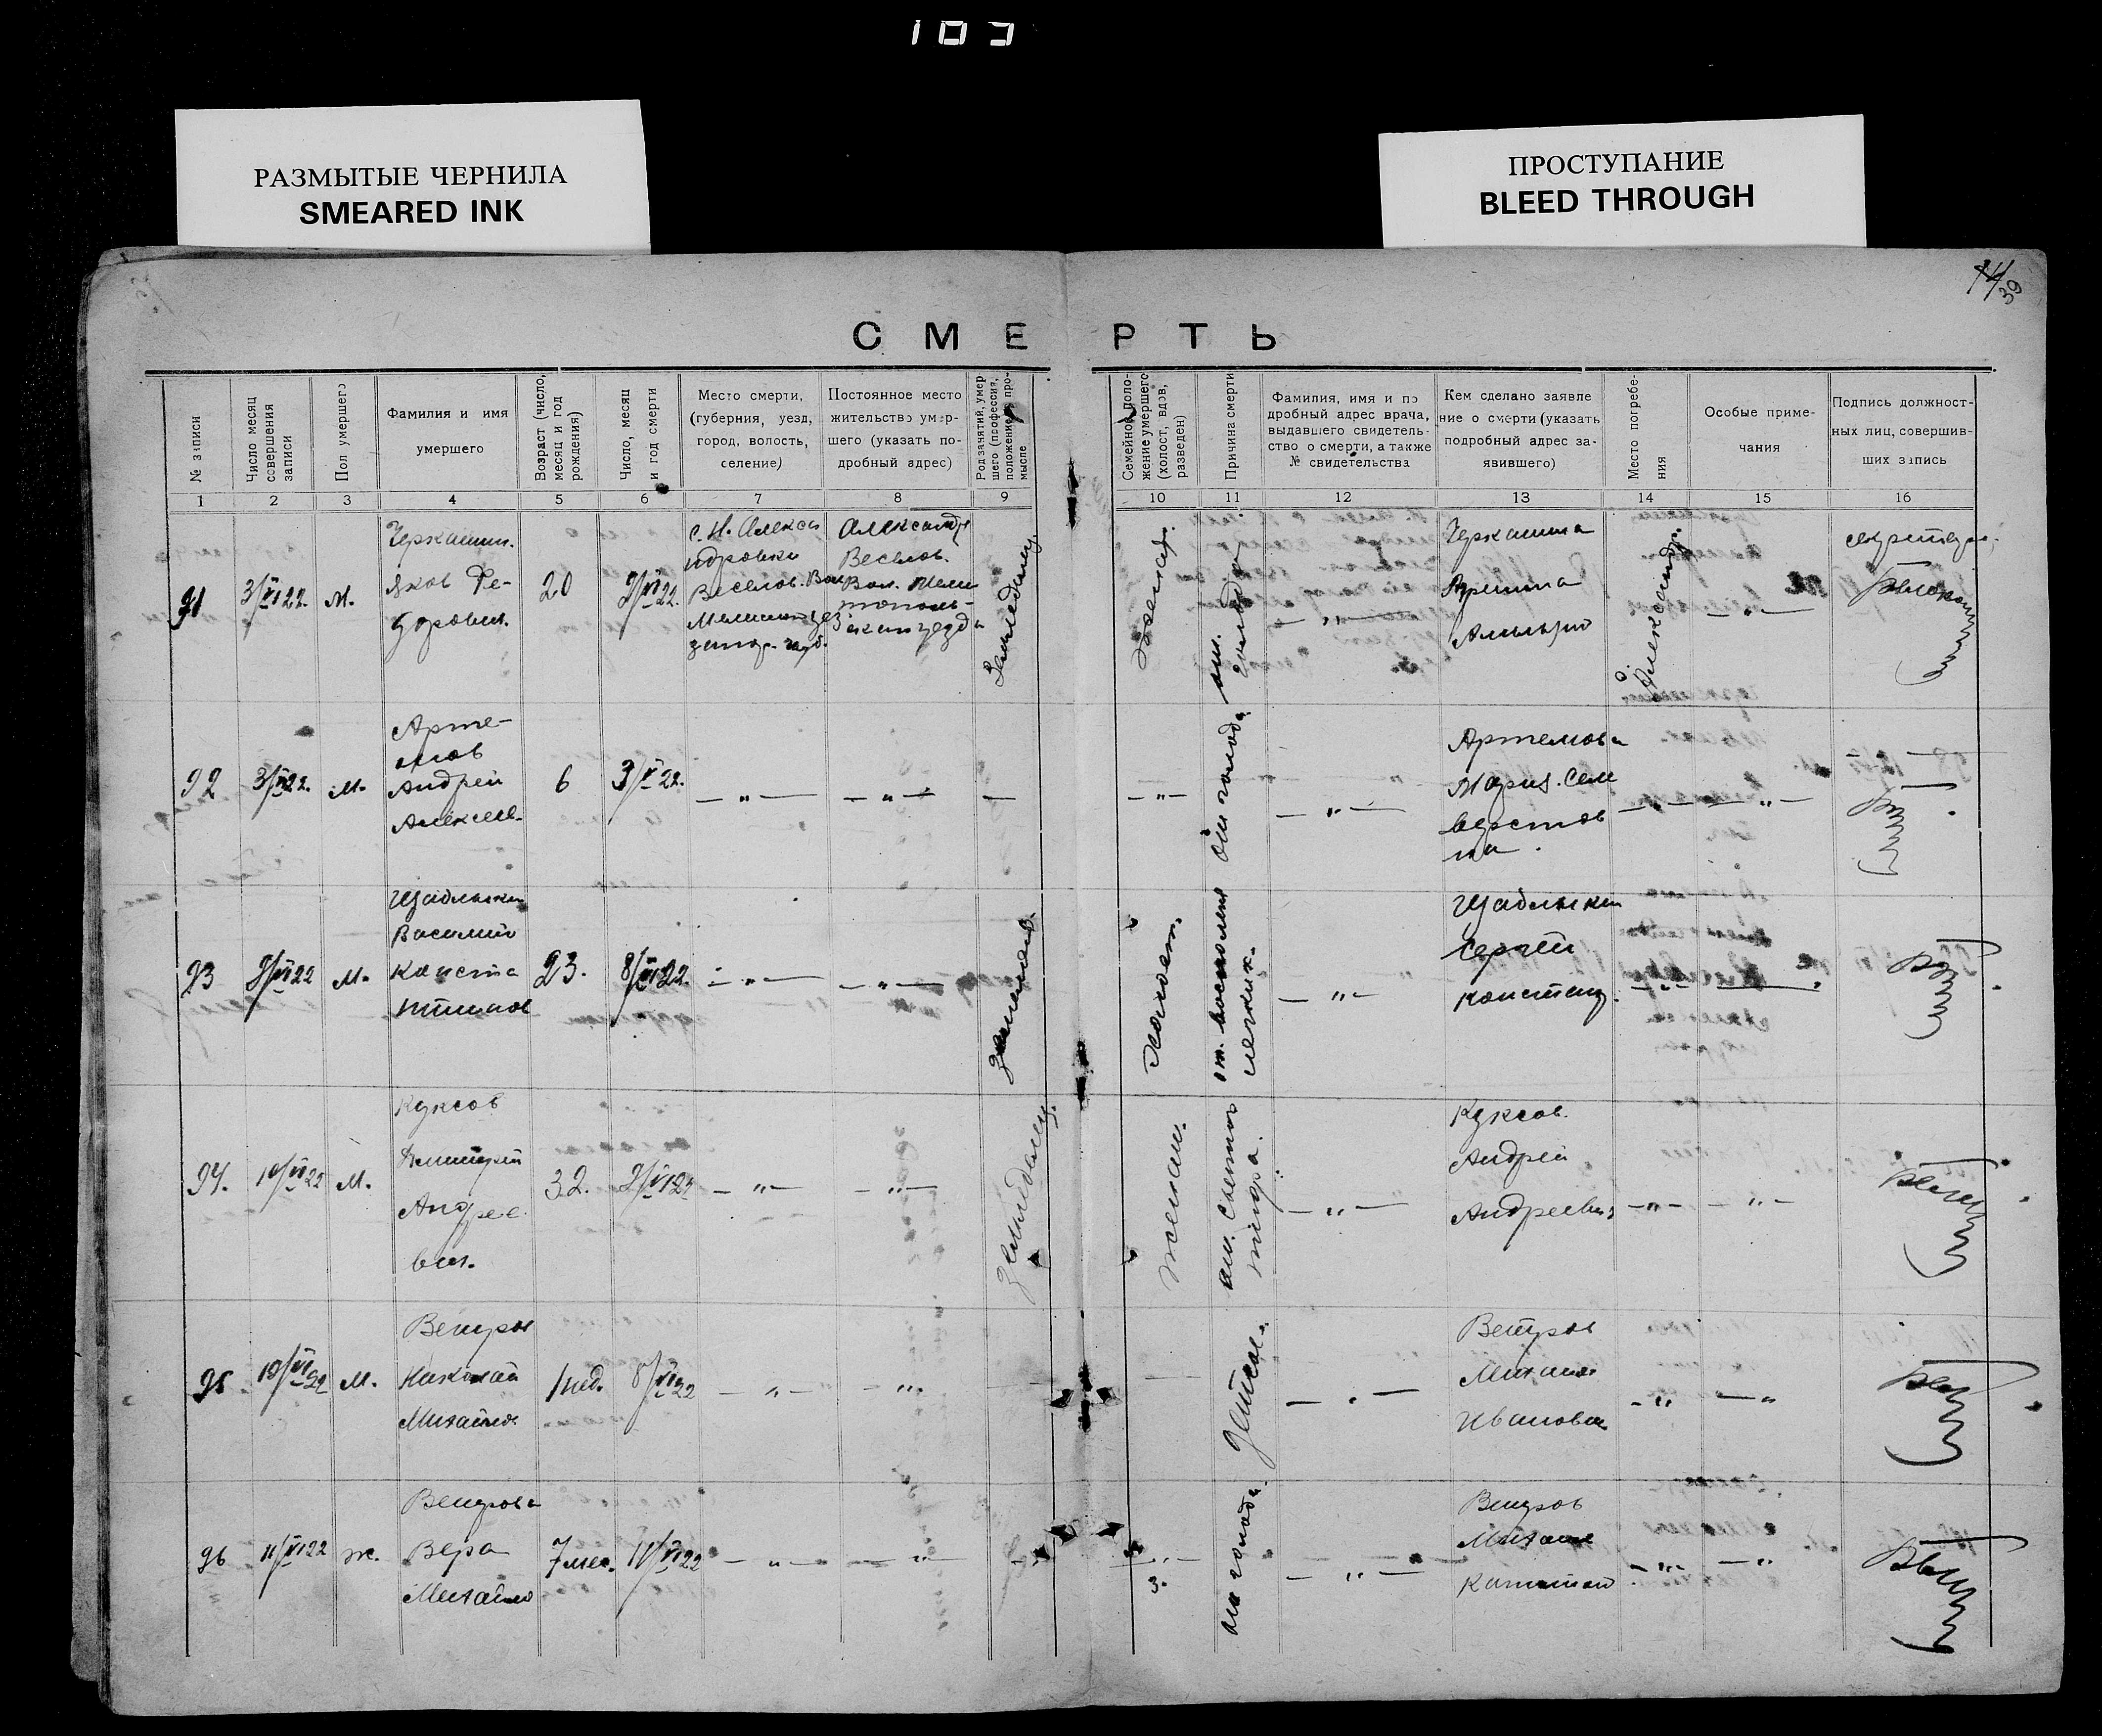 103
РАЗМЫТЫЕ ЧЕРНИЛА
SMEARED INK
ПРОСТУПАНИЕ
BLEED THROUGH
39
СМЕРТЬ
№ записи
Число месяц
совершения
записи
Пол умершего
Фамилия и имя
умершего
Возраст (число,
месяц и год
рождения)
Число, месяц
и год смерти
Место смерти,
(губерния, уезд,
город, волость,
селение)
Постоянное место
жительство умер-
шего (указать по-
дробный адрес)
Род занятий, умер
шего (профессия,
положение в про-
мысле
Семейное поло-
жение умершего
(холост, вдов,
разведен)
Причина смерти
Фамилия, имя и по
дробный адрес врача,
выдавшего свидетель-
ство о смерти, а также
№ свидетельства
Кем сделано заявле
ние о смерти (указать
подробный адрес за-
явившего)
Место погребе-
ния
Особые приме-
чания
Подпись должност-
ных лиц, совершив-
ших запись
1 2 3 4 5 6 7 8 9 10 11 12 13 14 15 16
91
3/VI 22.
м.
Черкашин.
Яков Фе-
дорович.
20
2/VI 22.
с. Н. Алекса
ндровки
Веселов. Вол
Мелитоп. уез
запор. губ.
Александр
Веселов.
Вол. Мели
тополь-
ского уезда
Земледелец
от голода
— „ —
Черкашина
Арина
Александр.
— „ —
секретарь
92
3/VI 22.
м.
Арте-
мов
Андрей
Алексеев.
6
3/VI 22.
— „ —
— „ —
—
— „ —
от голода
— „ —
Артемова
Мария. Сели
верстов
на.
— „ —
93
8/VI 22
м.
Щаблыкин
Василий
Конста
нтинов
23.
8/VI 22.
— „ —
— „ —
холост.
от. воспаления
легких.
— „ —
Щаблыкин
Сергей
Констан.
94.
10/VI 22
м.
Куксов
Дмитрий
Андрее
вич.
32.
9/VI 22
— „ —
— „ —
Земледелец.
женат.
от. сыпного
тифа.
— „ —
Куксов.
Андрей
Андреевич
— „ —
— „ —
95.
10/VI 22
м.
Ветров
Николай
Михайлов.
1 нед.
8/VI 22
— „ —
— „ —
Ветров
Михаил
Иванович
— „
— „
96
11/VI 22
ж.
Ветрова
Вера
Михайлов
7 мес.
11/VI 22
— „ —
— „ —
от голода.
— „ —
Ветров
Михаил
— „ —
— „